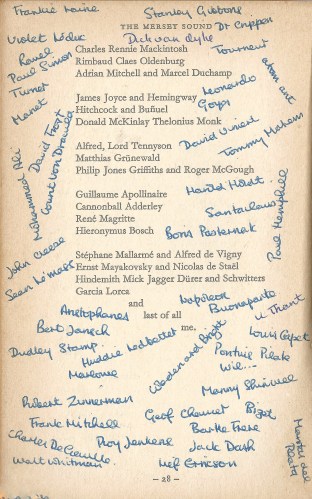 Frankie Laine
Stanley Gibbons
THE MERSEY SOUND
Dr Crippen
Violet Leduc
Dick van Dyke
Ravel
Charles Rennie Mackintosh
Tourneur
Paul Simon
Rimbaud Claes Oldenburg
Turner
Adrian Mitchell and Marcel Duchamp
atom ant
Manet
James Joyce and Hemingway
Leonardo
Hitchcock and Buñuel
Goya
Donald McKinlay Thelonius Monk
David Frost
Count von Dracula
Mohammed Ali
Alfred, Lord Tennyson
David
Tommy
Matthias Grünewald
Philip Jones Griffiths and Roger McGough
Guillaume Apollinaire
Harold Holdt
Cannonball Adderley
Santaclaus
René Magritte
Paul Hemphill
Hieronymus Bosch
Boris Pasternak
John Cleese
Stéphane Mallarmé and Alfred de Vigny
Sean Lemass
Ernst Mayakovsky and Nicolas de Staël
Hindemith Mick Jagger Dürer and Schwitters
Garcia Lorca
Napoleon
and
Buonaparte
Aristophanes
last of all
U Thant
Bert Jansch
me.
Louis Capet
Dudley Stamp
Huddie Ledbetter
Weedon and Bright
Pontius Pilate
Marlowe
Manny Shinwell
Robert Zimmerman
Bizet
Frank Mitchell
Geof Chaucer
Bartle Frere
Charles De Gaulle
Roy Jenkins
Jack Dash
Walt Whitman
Leif Ericson
– 28 –